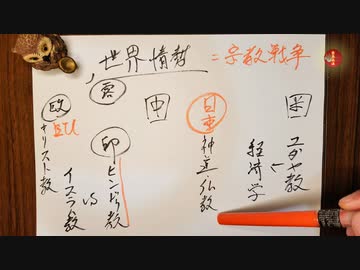 世界情勢 = 宗教戦争
露
中
日本
米
欧
EU
キリスト教
印
vs
イスラム教
神道・仏教
ユダヤ教
経済学